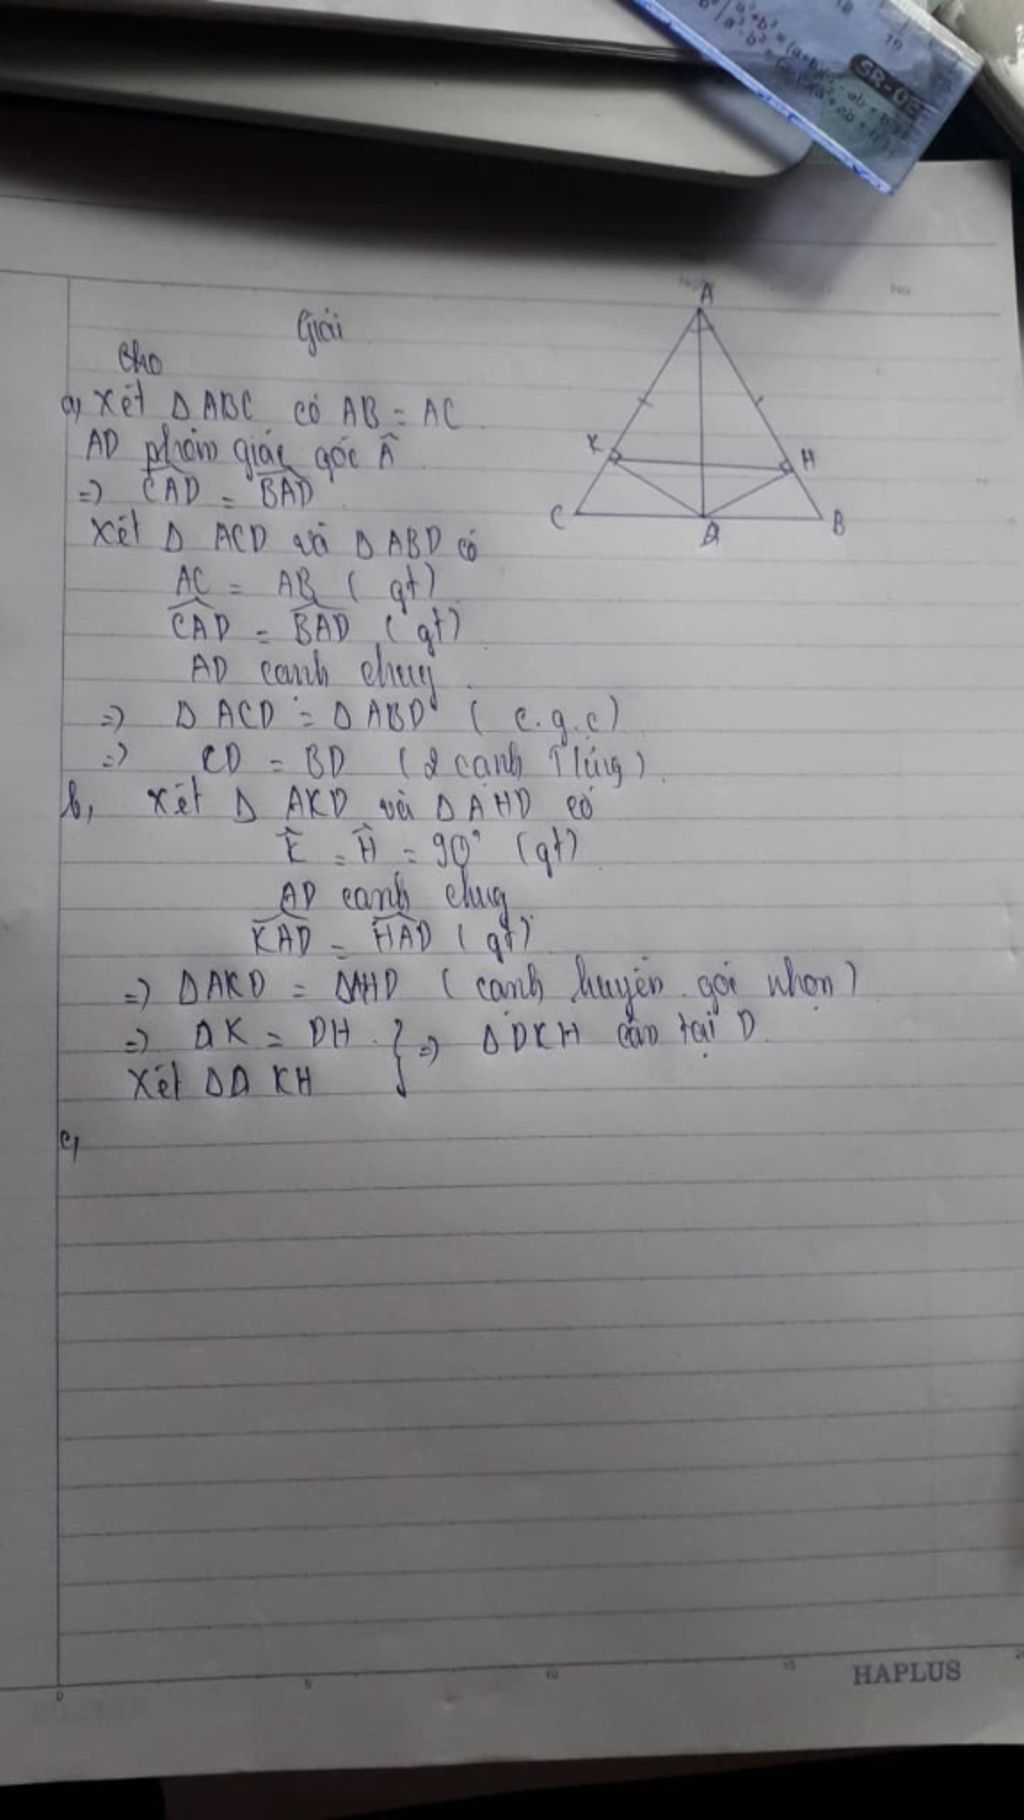 18
19
SR-02
a³+b³ = (a+b)(a² - ab + b²)
a³-b³ = (a-b)(a²+ab+b²)
No.
Giải
Cho
a, Xét Δ ABC có AB = AC
AD phân giác góc Â
=> CAD = BAD
Xét Δ ACD và Δ ABD có
AC = AB ( gt)
CAD = BAD ( gt)
AD cạnh chug
=> Δ ACD = Δ ABD ( c.g.c)
=> CD = BD ( 2 cạnh Tứng)
b, Xét Δ AKD và Δ AHD có
K = H = 90° (gt)
AD cạnh chug
KAD = HAD ( gt)
=> Δ AKD = ΔAHD ( cạnh huyền góc nhọn)
=> DK = DH } => Δ DKH cân tại D
Xét Δ D KH
c,
A
K
H
C
D
B
0
5
10
15
20
HAPLUS